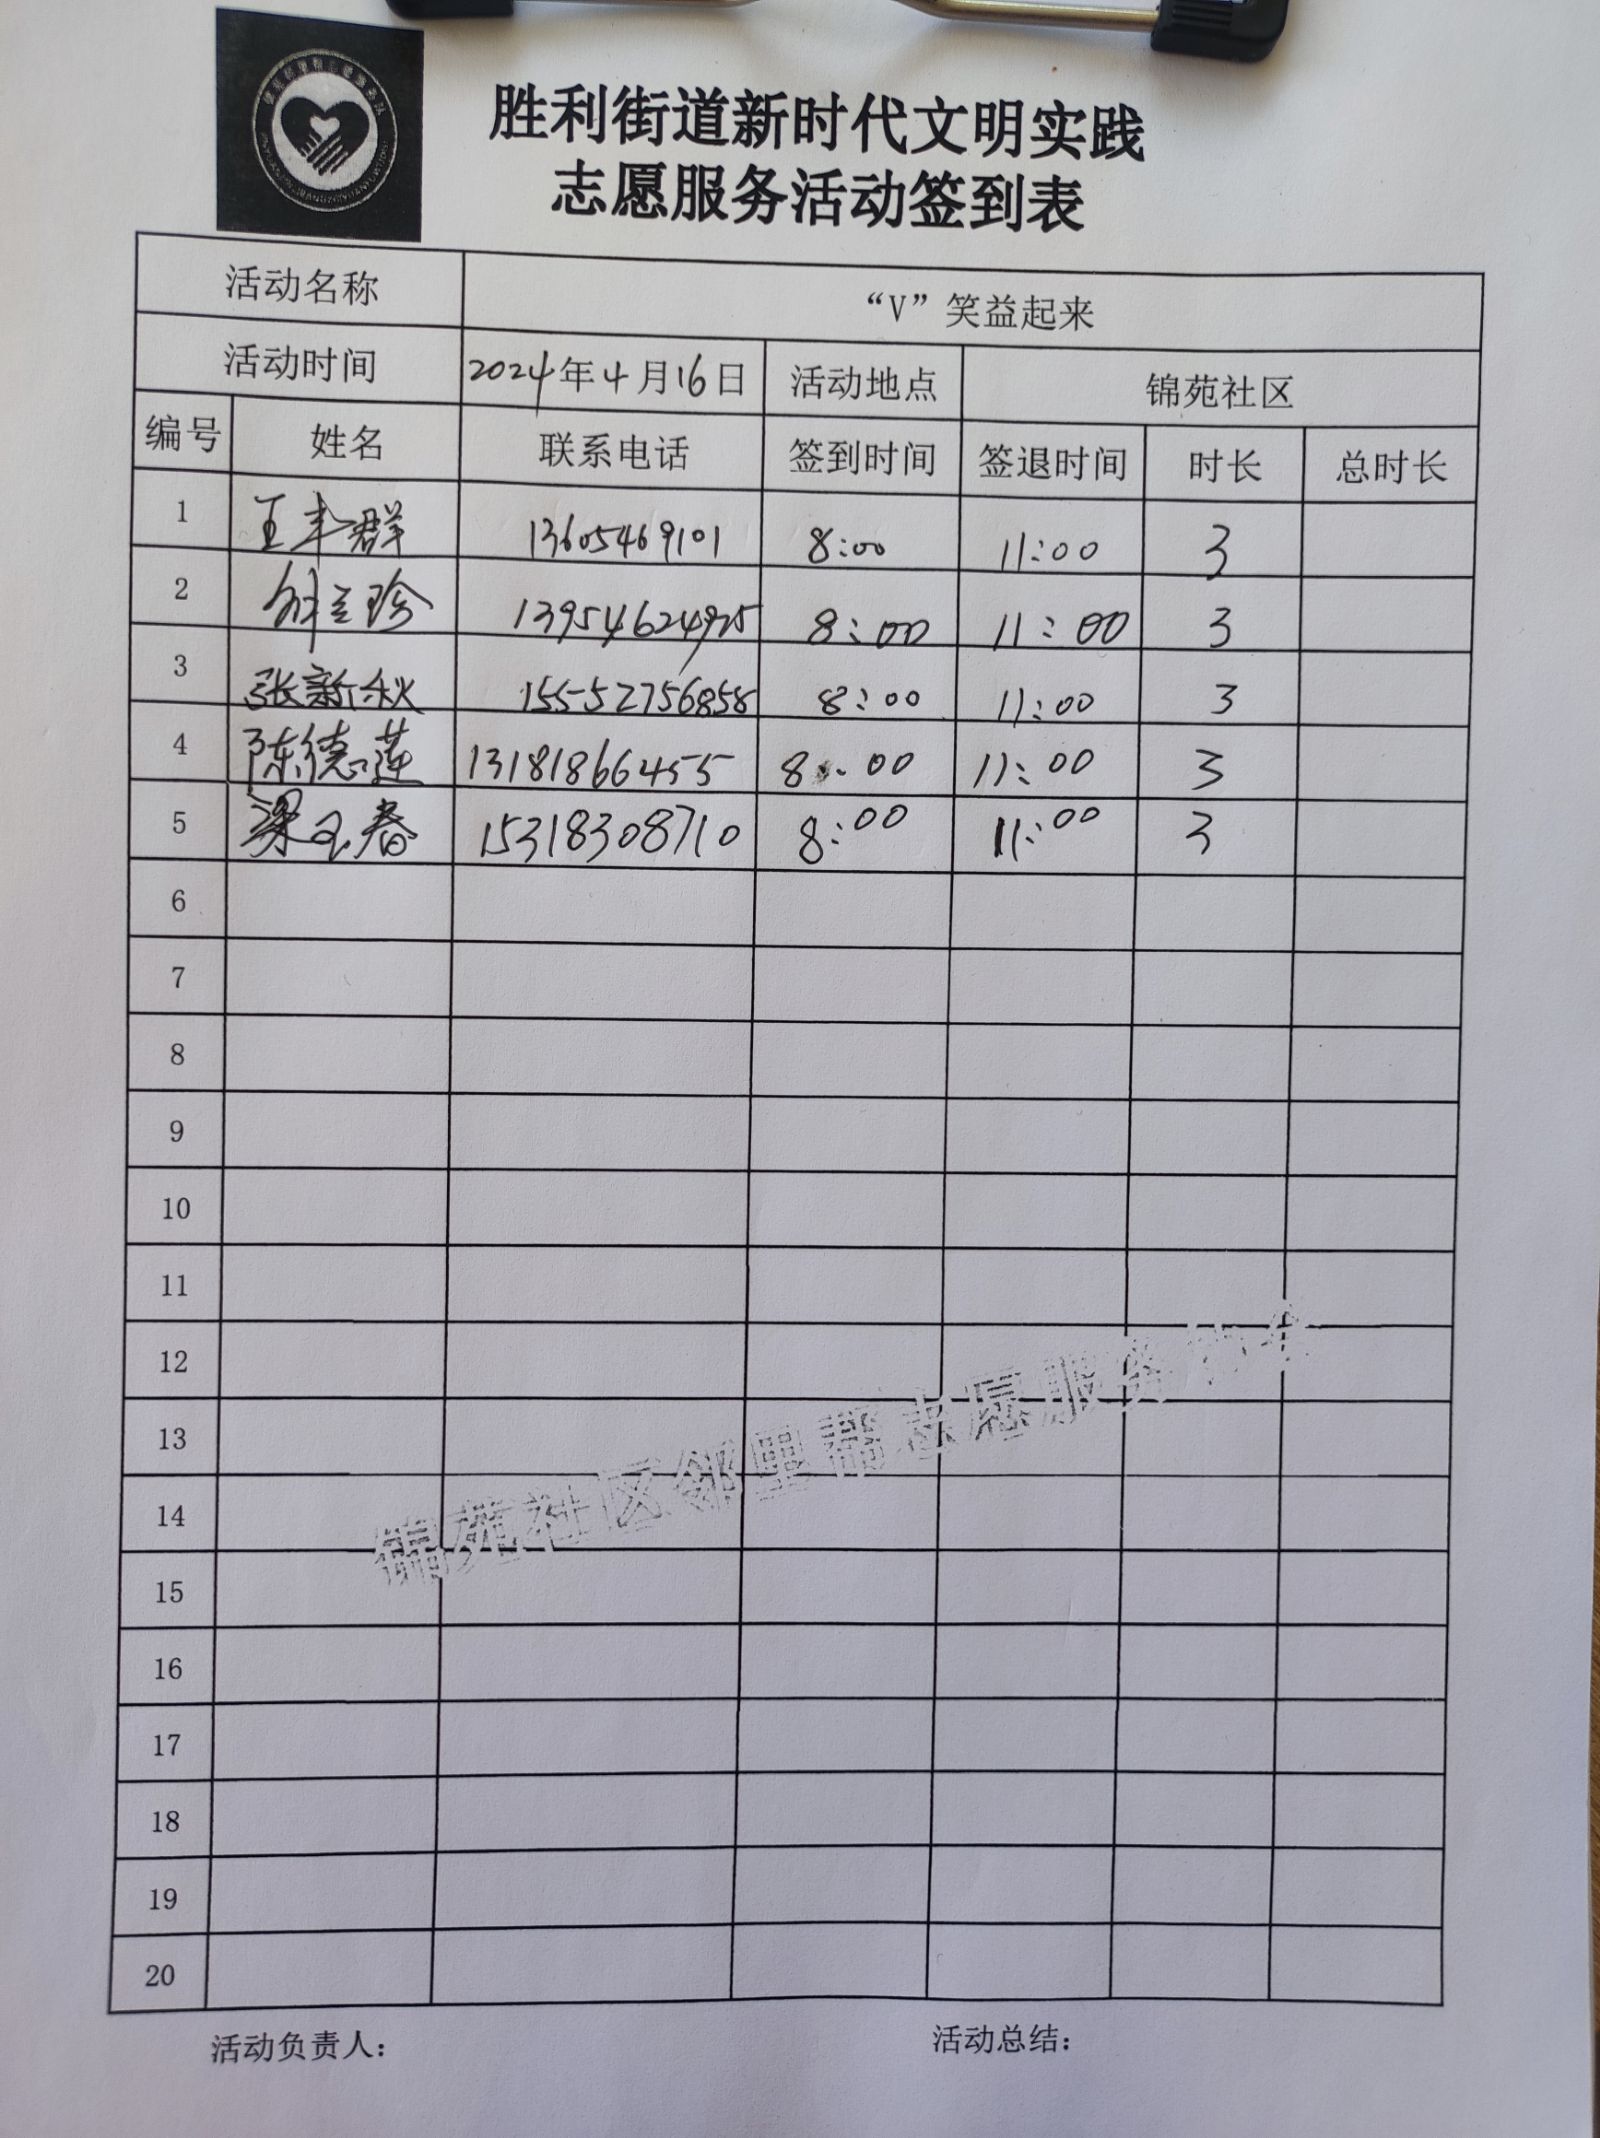 胜利街道新时代文明实践
志愿服务活动签到表
活动名称 “V”笑益起来
活动时间 2024年4月16日 活动地点 锦苑社区
编号 姓名 联系电话 签到时间 签退时间 时长 总时长
1 王丰群 13605469101 8:00 11:00 3
2 珍 13954624925 8:00 11:00 3
3 张新秋 15552756858 8:00 11:00 3
4 陈德莲 13181866455 8:00 11:00 3
5 梁玉春 15318308710 8:00 11:00 3
6
7
8
9
10
11
12
13
14
15
16
17
18
19
20
锦苑社区邻里帮志愿服务协会
活动负责人： 活动总结：